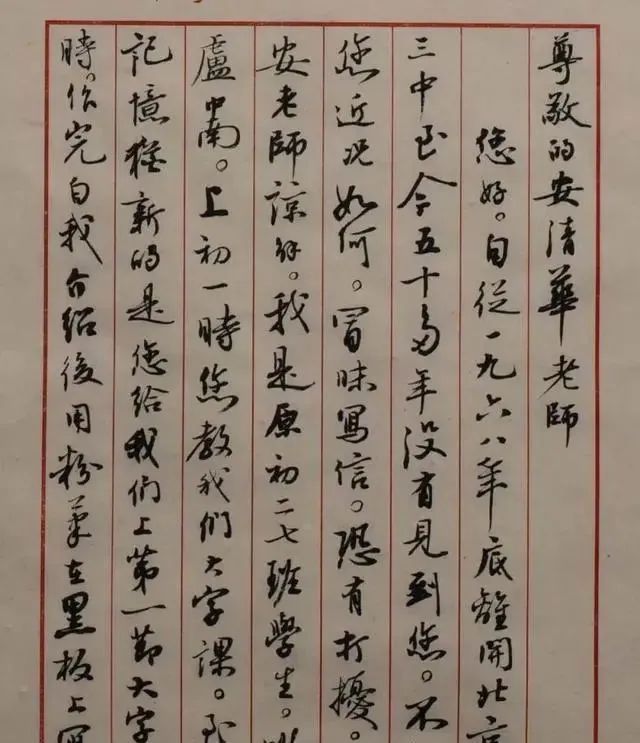 尊敬的安清華老師
您好。自從一九六八年底離開北京
三中至今五十多年没有見到您。不
您近况如何。冒昧寫信。恐有打擾。
安老師諒解。我是原初二七班學生。
盧中南。上初一時您教我們大字課。至
記憶猶新的是您給我們上第一節大字
時。作完自我介紹後用粉筆在黑板上寫